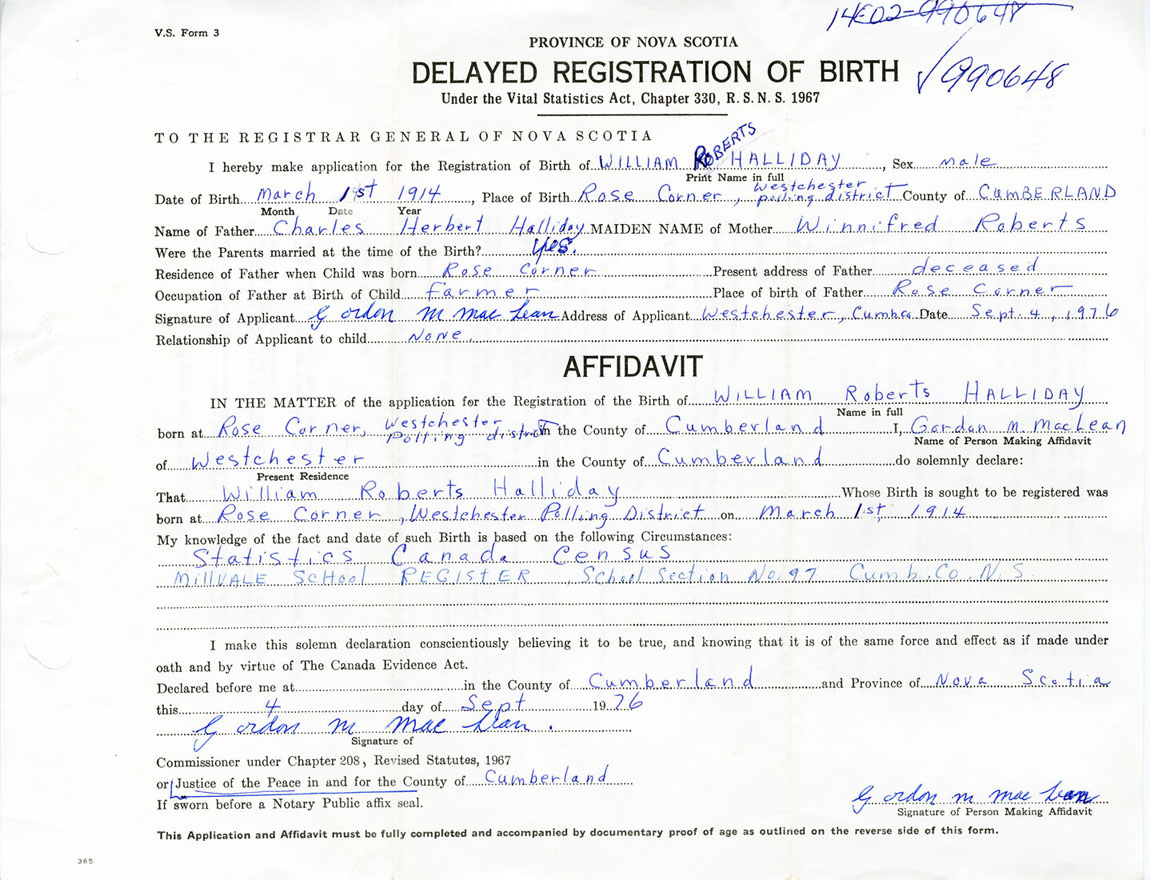 14E02-990648
V.S. Form 3
PROVINCE OF NOVA SCOTIA
DELAYED REGISTRATION OF BIRTH √990648
Under the Vital Statistics Act, Chapter 330, R.S.N.S. 1967
TO THE REGISTRAR GENERAL OF NOVA SCOTIA
I hereby make application for the Registration of Birth of WILLIAM ROBERTS HALLIDAY, Sex male
Print Name in full
Date of Birth March 1st 1914, Place of Birth Rose Corner, Westchester polling district County of CUMBERLAND
Month Date Year
Name of Father Charles Herbert Halliday MAIDEN NAME of Mother Winnifred Roberts
Were the Parents married at the time of the Birth? yes.
Residence of Father when Child was born Rose Corner Present address of Father deceased
Occupation of Father at Birth of Child farmer Place of birth of Father Rose Corner
Signature of Applicant Gordon M MacLean Address of Applicant Westchester, Cumb. Co Date Sept. 4, 1976
Relationship of Applicant to child None.
AFFIDAVIT
IN THE MATTER of the application for the Registration of the Birth of WILLIAM Roberts HALLIDAY
Name in full
born at Rose Corner, Westchester Polling district in the County of Cumberland I, Gordon M. MacLean
Name of Person Making Affidavit
of Westchester in the County of Cumberland do solemnly declare:
Present Residence
That William Roberts Halliday Whose Birth is sought to be registered was
born at Rose Corner, Westchester Polling District on March 1st, 1914
My knowledge of the fact and date of such Birth is based on the following Circumstances:
Statistics Canada Census
MILLVALE School REGISTER School Section No. 97 Cumb. Co. N.S.
I make this solemn declaration conscientiously believing it to be true, and knowing that it is of the same force and effect as if made under
oath and by virtue of The Canada Evidence Act.
Declared before me at in the County of Cumberland and Province of Nova Scotia
this 4 day of Sept 1976
Gordon M MacLean.
Signature of
Commissioner under Chapter 208, Revised Statutes, 1967
or Justice of the Peace in and for the County of Cumberland
If sworn before a Notary Public affix seal.
Gordon M MacLean
Signature of Person Making Affidavit
This Application and Affidavit must be fully completed and accompanied by documentary proof of age as outlined on the reverse side of this form.
385